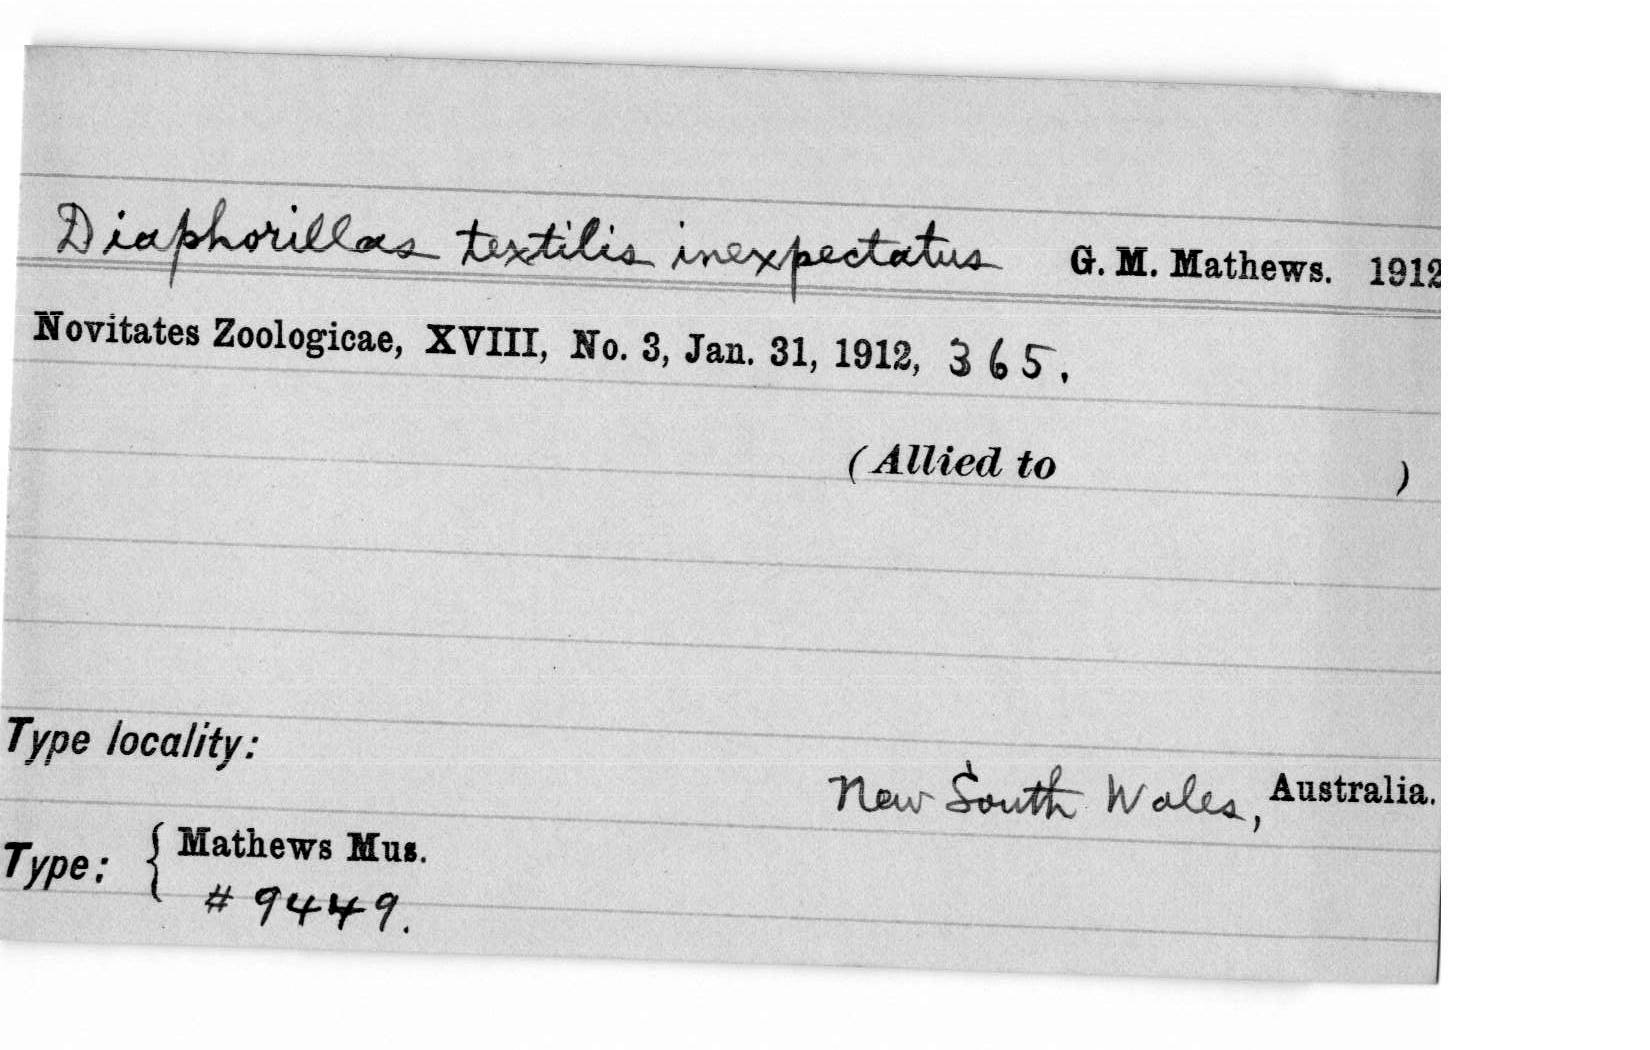 Diaphorillas textilis inexpectatus G. M. Mathews. 1912
Novitates Zoologicae, XVIII, No. 3, Jan. 31, 1912, 365.
(Allied to )
Type locality:
New South Wales, Australia.
Type: { Mathews Mus.
# 9449.